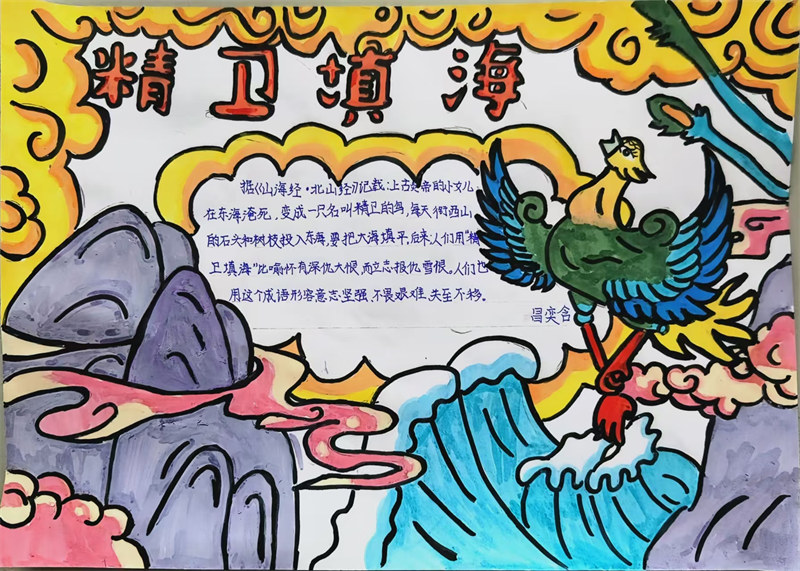 精卫填海
据《山海经·北山经》记载:上古炎帝的小女儿
在东海淹死,变成一只名叫精卫的鸟,每天衔西山
的石头和树枝投入东海,要把大海填平,后来人们用“精
卫填海”比喻怀有深仇大恨,而立志报仇雪恨。人们也
用这个成语形容意志坚强,不畏艰难,矢至不移。
吕奕含